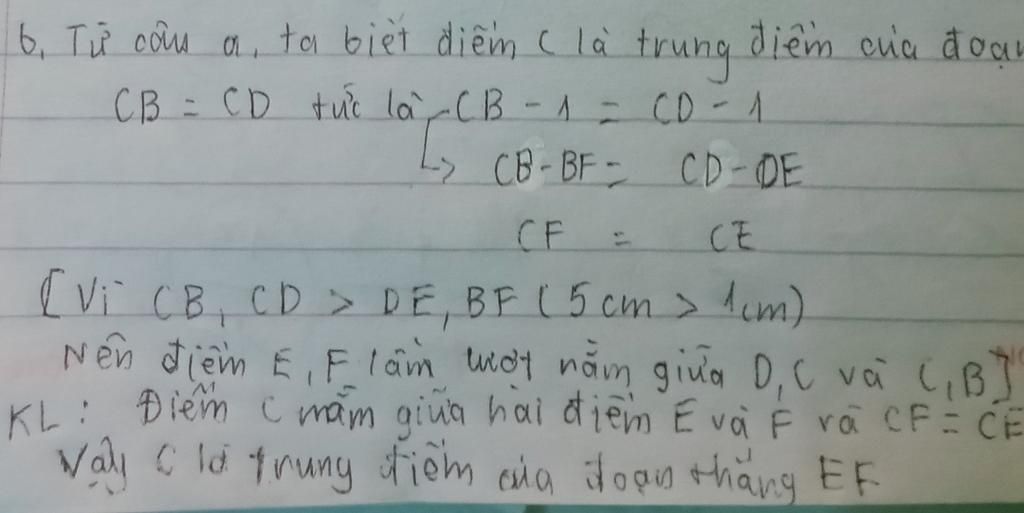 b, Từ câu a, ta biết điểm C là trung điểm của đoạn
CB = CD tức là CB - 1 = CD - 1
↳ CB - BF = CD - DE
CF = CE
[Vì CB, CD > DE, BF (5cm > 1cm)
Nên điểm E, F lần lượt nằm giữa D, C và C, B]
KL: Điểm C nằm giữa hai điểm E và F và CF = CE
Vậy C là trung điểm của đoạn thẳng EF